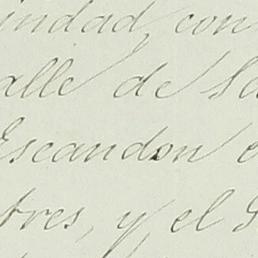 indad, con
alle de Sa
Escandon e
tres, y el S